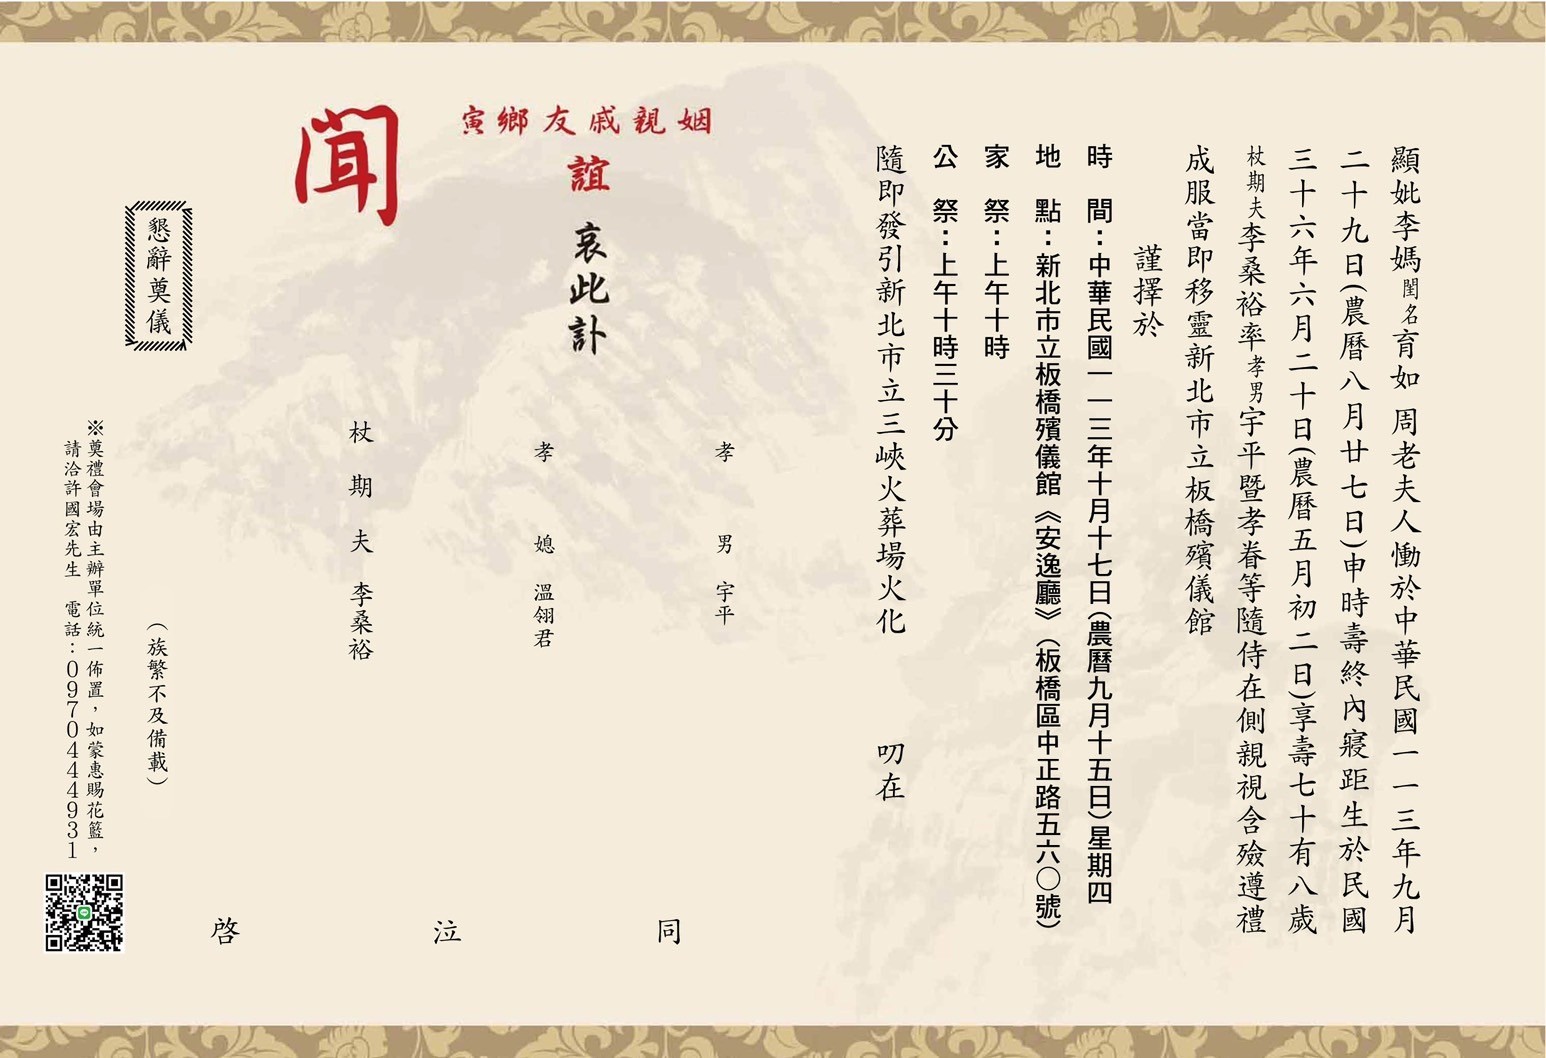 顯妣李媽閨名育如 周老夫人慟於中華民國一一三年九月
二十九日(農曆八月廿七日)申時壽終內寢距生於民國
三十六年六月二十日(農曆五月初二日)享壽七十有八歲
杖期夫李桑裕率孝男宇平暨孝眷等隨侍在側親視含殮遵禮
成服當即移靈新北市立板橋殯儀館
謹擇於
時 間：中華民國一一三年十月十七日(農曆九月十五日)星期四
地 點：新北市立板橋殯儀館《安逸廳》(板橋區中正路五六〇號)
家 祭：上午十時
公 祭：上午十時三十分
隨即發引新北市立三峽火葬場火化 叨在
姻親戚友鄉寅
誼 哀此訃
聞
孝 男 宇平
孝 媳 溫翎君
杖期夫 李桑裕
同 泣 啓
懇辭奠儀
(族繁不及備載)
※奠禮會場由主辦單位統一佈置，如蒙惠賜花籃，
請洽許國宏先生 電話：0970444931